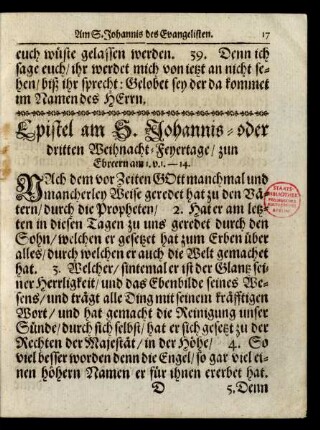 Am S. Johannis des Evangelisten. 17
euch wüste gelassen werden. 39. Denn ich
sage euch/ ihr werdet mich von ietzt an nicht se-
hen/ biß ihr sprecht: Gelobet sey der da kommet
im Namen des HErrn.
Epistel am S. Johannis- oder
dritten Weihnacht-Feyertage/ zun
Ebreern am 1. v. 1. — 14.
NAch dem vor Zeiten GOtt manchmal und
mancherley Weise geredet hat zu den Vä-
tern/ durch die Propheten/ 2. Hat er am letz-
ten in diesen Tagen zu uns geredet durch den
Sohn/ welchen er gesetzet hat zum Erben über
alles/ durch welchen er auch die Welt gemachet
hat. 3. Welcher/ sintemal er ist der Glantz sei-
ner Herrligkeit/ und das Ebenbilde seines We-
sens/ und trägt alle Ding mit seinem kräfftigen
Wort/ und hat gemacht die Reinigung unser
Sünde/ durch sich selbst/ hat er sich gesetzt zu der
Rechten der Majestät/ in der Höhe/ 4. So
viel besser worden denn die Engel/ so gar viel ei-
nen höhern Namen er für ihnen ererbet hat.
D 5. Denn
STAATS-
BIBLIOTHEK
BERLIN